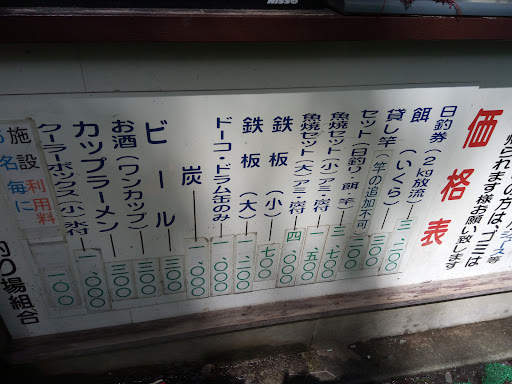 NISSO
の方は、ゴミは
帰られます様お願い致します
価格表
日釣券(2kg放流)三、二〇〇
餌(いくら)三〇〇
貸し竿(竿の追加不可)二〇〇
セット(日釣り、餌、竿)三、七〇〇
魚焼セット(小)アミ、炭付
魚焼セット(大)アミ、炭付四、〇〇〇
鉄板(小)七〇〇
鉄板(大)一、二〇〇
ドーコ・ドラム缶のみ一、〇〇〇
炭一、〇〇〇
ビール
お酒(ワンカップ)三〇〇
カップラーメン
クーラーボックス(小)氷付一、〇〇〇
施設利用料
名毎に一〇〇
り場組合